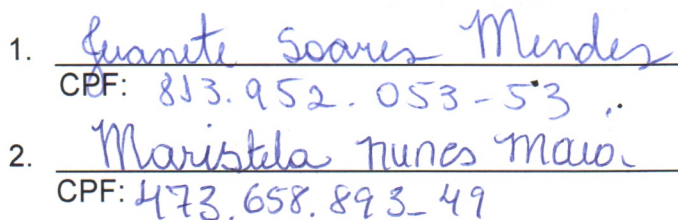 1. Juanete Soares Mendes
CPF: 813.952.053-53
2. Maristela nunes maia
CPF: 473.658.893-49